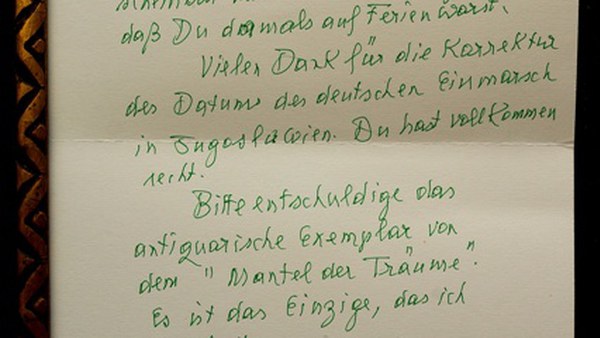 daß Du damals auf Ferien warst.
Vielen Dank für die Korrektur
des Datums des deutschen Einmarsch
in Jugoslavien. Du hast vollkommen
recht.
Bitte entschuldige das
antiquarische Exemplar von
dem "Mantel der Träume".
Es ist das Einzige, das ich